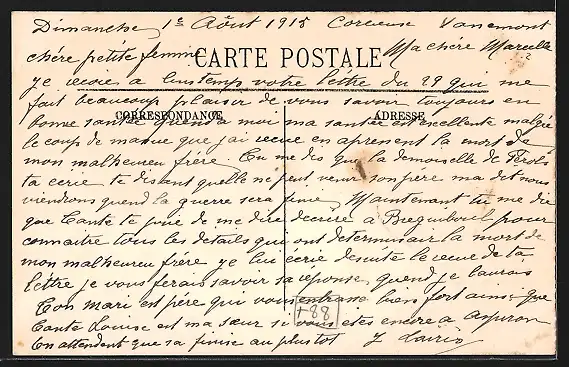 Dimanche 1e Août 1915
chére petite femme Ma chére Marcelle
CARTE POSTALE
je recois a linstemp votre lettre du 29 qui me
fait beaucoup plaisir de vous savoir toujours en
CORRESPONDANCE ADRESSE
bonne santée quand a moi ma santée est excellente malgré
le coup de masue que j'ai recue en aprenent la mort de
mon malheureu frére Tu me dis que la demoiselle de Pérols
ta ecrie te disant quelle ne peut venir son pére ma dit nous
viendrons quand la guerre sera finie Maintenant tu me dis
que Tante te prie de me dire decrire a pour
connaitre tous les details qui ont determinair la mort de
mon malheureu frére je lui ecrie desuite le recue de ta
lettre je vous ferais savoir sa reponse quand je laurais
Ton mari est pére qui vous enbrasse bien fort ainsi que
Tante Louise est ma sœur si vous etes encore a Aspiran
En attendent que sa finise au plustot
+88